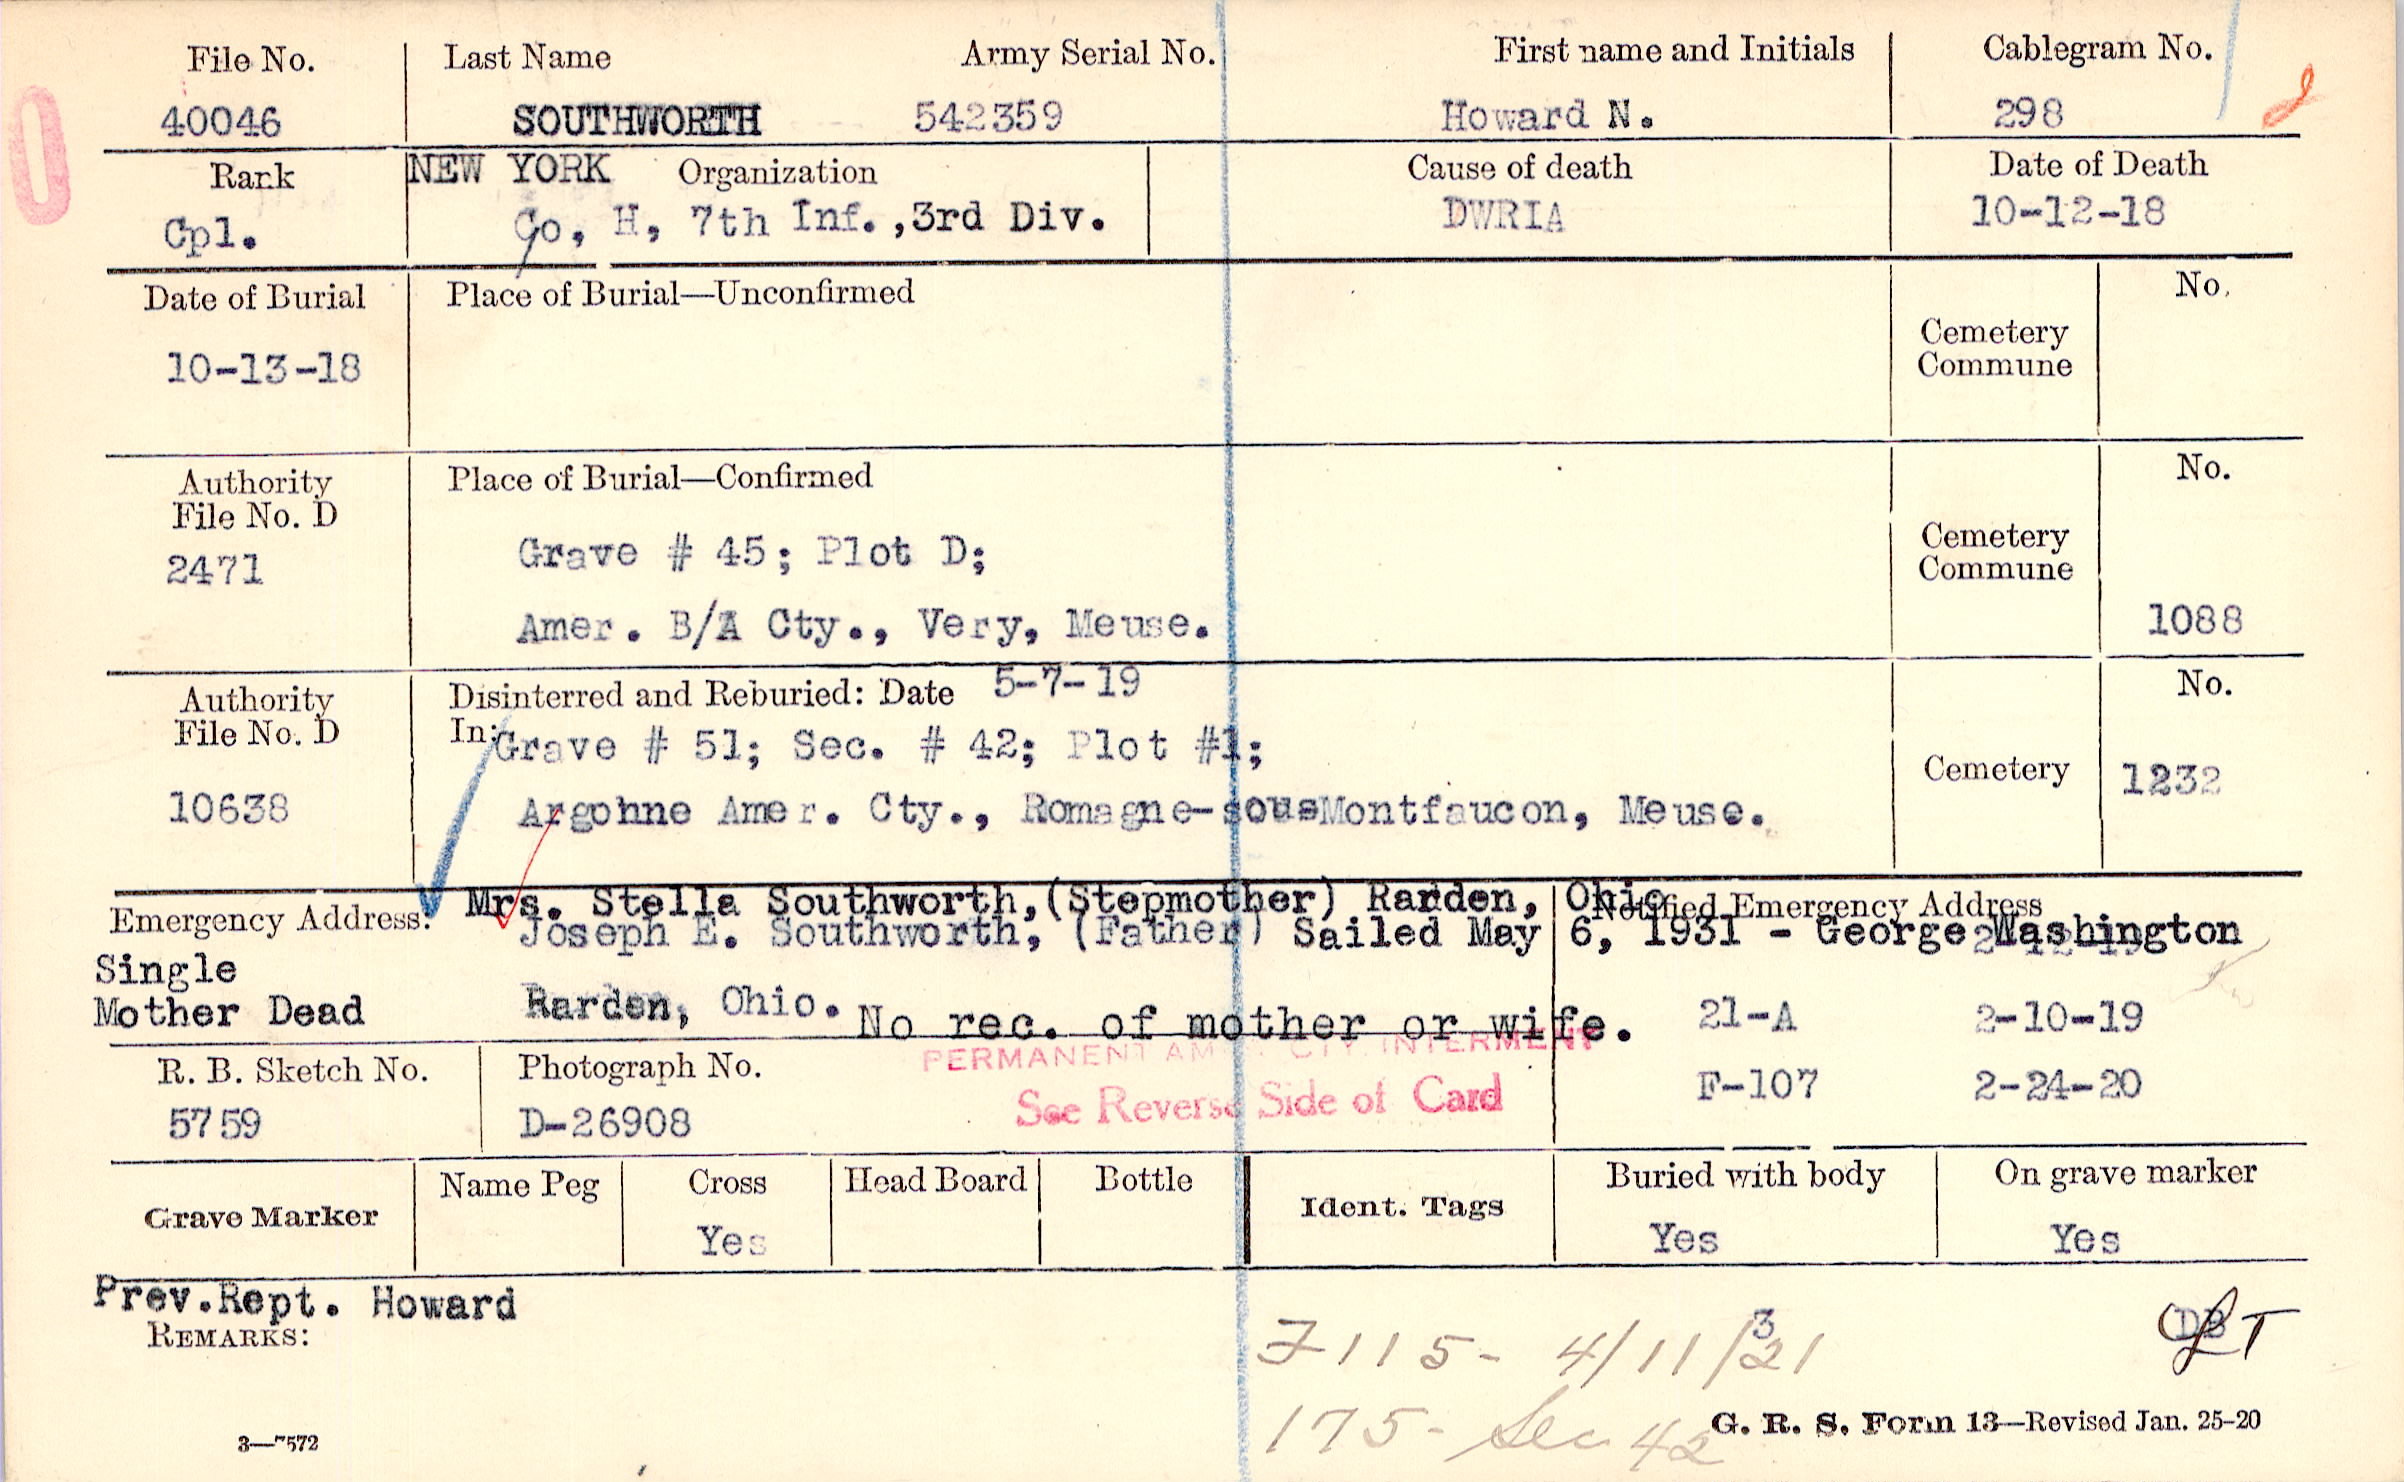 File No. Last Name Army Serial No. First name and Initials Cablegram No.
40046 SOUTHWORTH 542359 Howard N. 298
Rank NEW YORK Organization Cause of death Date of Death
Cpl. Co, H, 7th Inf.,3rd Div. DWRIA 10-12-18
Date of Burial Place of Burial—Unconfirmed No.
10-13-18 Cemetery
Commune
Authority Place of Burial—Confirmed No.
File No. D
2471 Grave # 45; Plot D; Cemetery
Commune
Amer. B/A Cty., Very, Meuse. 1088
Authority Disinterred and Reburied: Date 5-7-19 No.
File No. D In: Grave # 51; Sec. # 42; Plot #1;
Cemetery 1232
10638 Argohne Amer. Cty., Romagne-sousMontfaucon, Meuse.
Mrs. Stella Southworth,(Stepmother) Rarden, Ohio
Emergency Address: Notified Emergency Address
Joseph E. Southworth, (Father) Sailed May 6, 1931 - George Washington
Single
Mother Dead Rarden, Ohio. No rec. of mother or wife. 21-A 2-10-19
PERMANENT AMER. CTY. INTERMENT
R. B. Sketch No. Photograph No. See Reverse Side of Card F-107 2-24-20
5759 D-26908
Grave Marker Name Peg Cross Head Board Bottle Ident. Tags Buried with body On grave marker
Yes Yes Yes
Prev.Rept. Howard
REMARKS:
F115- 4/11/21 3
175- Sec 42
G. R. S. Form 13—Revised Jan. 25-20
3—7572